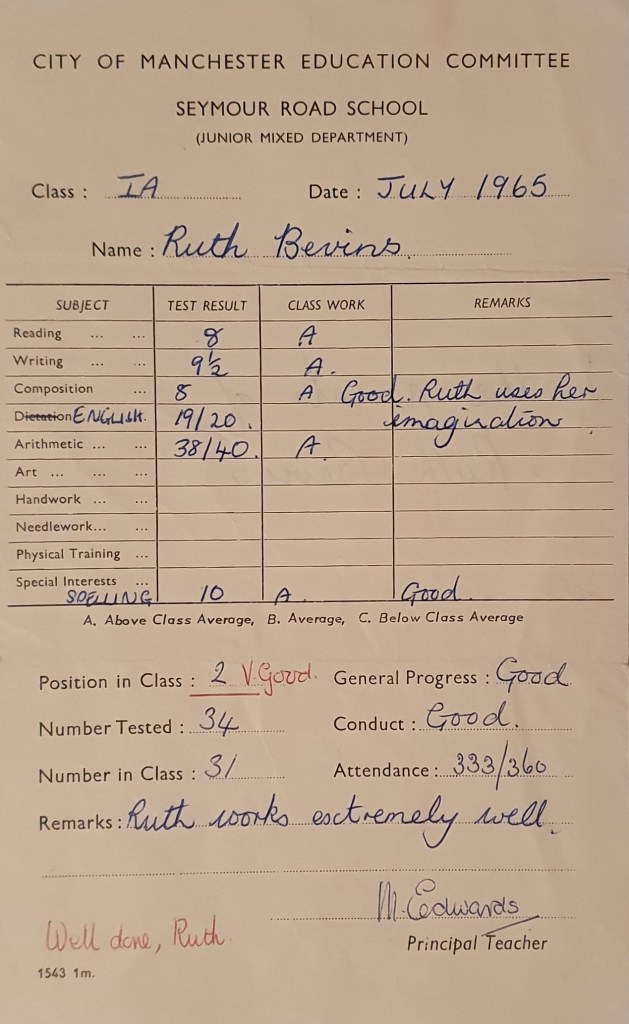 CITY OF MANCHESTER EDUCATION COMMITTEE
SEYMOUR ROAD SCHOOL
(JUNIOR MIXED DEPARTMENT)
Class : IA Date : JULY 1965
Name : Ruth Bevins.
SUBJECT TEST RESULT CLASS WORK REMARKS
Reading ... ... 8 A
Writing ... ... 9½ A.
Composition ... 8 A Good. Ruth uses her
Dictation ENGLISH. 19/20. imagination
Arithmetic ... ... 38/40. A.
Art ... ... ...
Handwork ... ...
Needlework... ...
Physical Training ...
Special Interests ...
SPELLING 10 A. Good.
A. Above Class Average, B. Average, C. Below Class Average
Position in Class : 2 V.Good. General Progress : Good.
Number Tested : 34 Conduct : Good.
Number in Class : 31 Attendance : 333/360
Remarks : Ruth works esctremely well.
M. Edwards
Well done, Ruth. Principal Teacher
1543 1m.